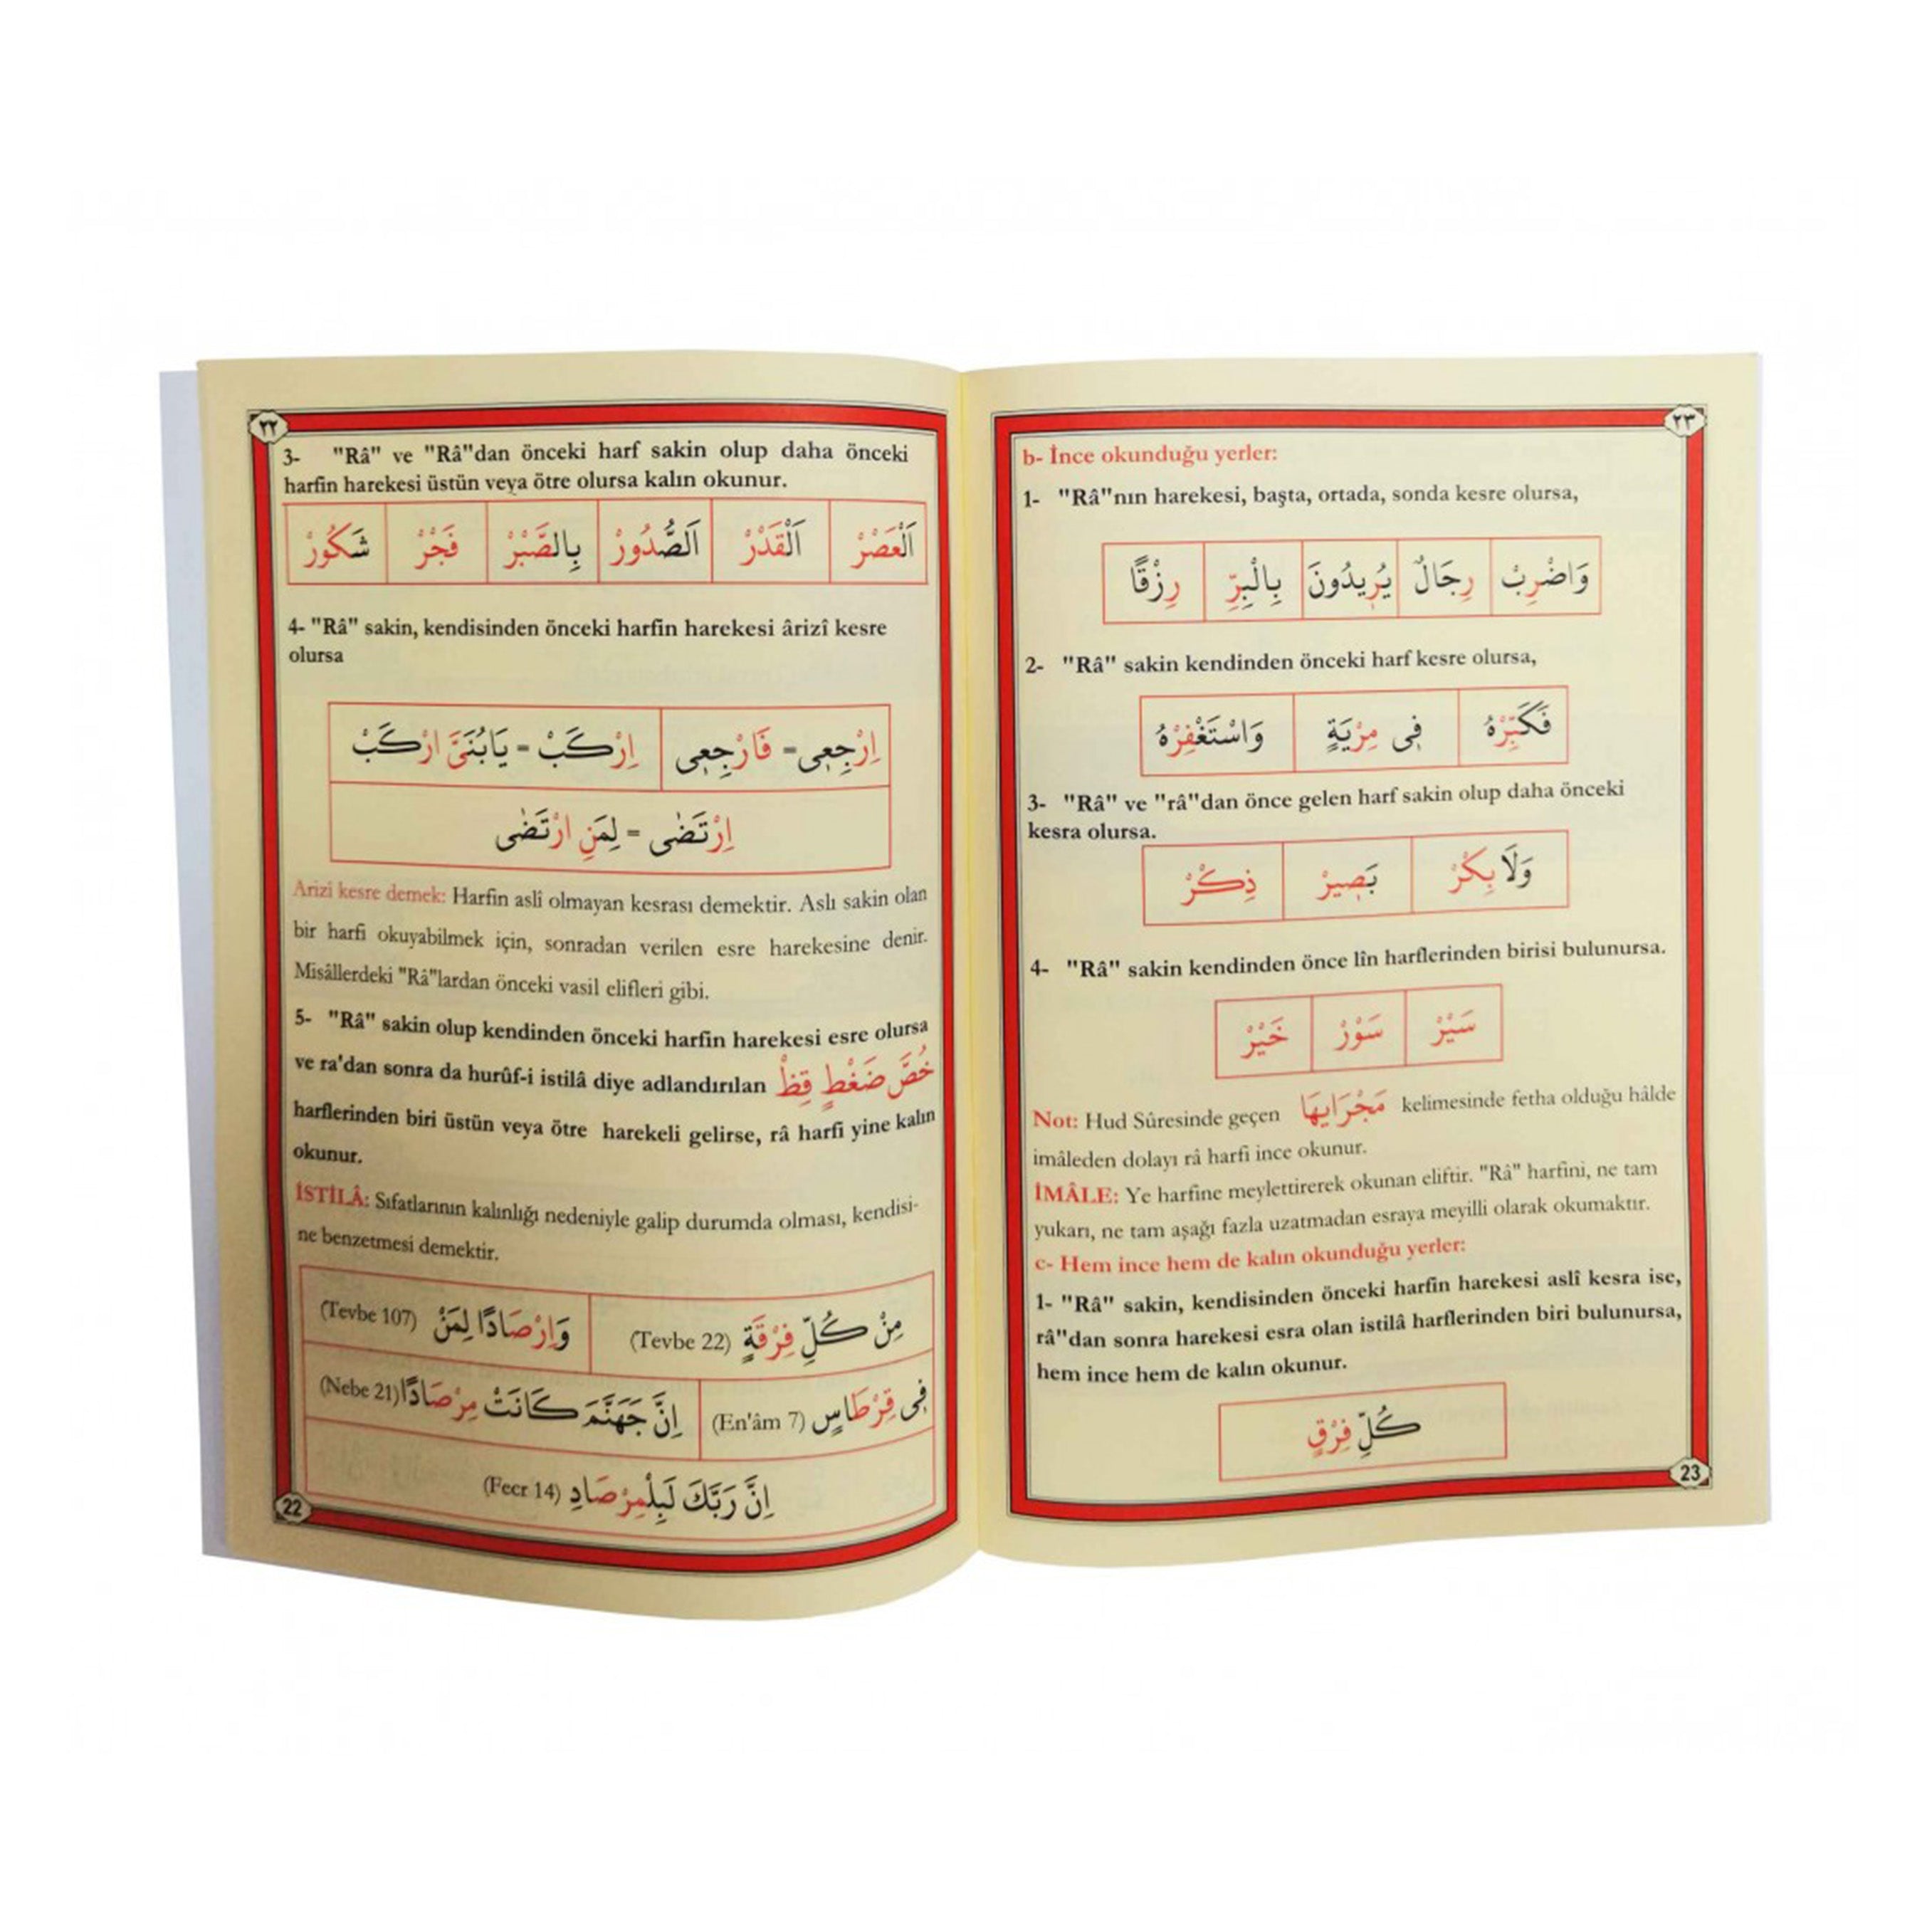 ٢٢
3- "Râ" ve "Râ"dan önceki harf sakin olup daha önceki
harfin harekesi üstün veya ötre olursa kalın okunur.
اَلْعَصْرْ اَلْقَدْرْ اَلصُّدُورْ بِالصَّبْرْ فَجْرْ شَكُورْ
4- "Râ" sakin, kendisinden önceki harfin harekesi ârizî kesre
olursa
اِرْجِعِى = فَارْجِعِى اِرْكَبْ = يَابُنَىَّ ارْكَبْ
اِرْتَضٰى = لِمَنِ ارْتَضٰى
Arizî kesre demek: Harfin aslî olmayan kesrası demektir. Aslı sakin olan
bir harfi okuyabilmek için, sonradan verilen esre harekesine denir.
Misâllerdeki "Râ"lardan önceki vasil elifleri gibi.
5- "Râ" sakin olup kendinden önceki harfin harekesi esre olursa
ve ra'dan sonra da hurûf-i istilâ diye adlandırılan خُصَّ ضَغْطٍ قِظْ
harflerinden biri üstün veya ötre harekeli gelirse, râ harfi yine kalın
okunur.
İSTİLÂ: Sıfatlarının kalınlığı nedeniyle galip durumda olması, kendisi-
ne benzetmesi demektir.
مِنْ كُلِّ فِرْقَةٍ (Tevbe 22) وَاِرْصَادًا لِمَنْ (Tevbe 107)
فِى قِرْطَاسٍ (En'âm 7) اِنَّ جَهَنَّمَ كَانَتْ مِرْصَادًا (Nebe 21)
اِنَّ رَبَّكَ لَبِلْمِرْصَادِ (Fecr 14)
22
٢٣
b- İnce okunduğu yerler:
1- "Râ"nın harekesi, başta, ortada, sonda kesre olursa,
وَاضْرِبْ رِجَالٌ يُرِيدُونَ بِالْبِرِّ رِزْقًا
2- "Râ" sakin kendinden önceki harf kesre olursa,
فَكَبِّرْهُ فِى مِرْيَةٍ وَاسْتَغْفِرْهُ
3- "Râ" ve "râ"dan önce gelen harf sakin olup daha önceki
kesra olursa.
وَلَا بِكْرْ بَصِيرْ ذِكْرْ
4- "Râ" sakin kendinden önce lîn harflerinden birisi bulunursa.
سَيْرْ سَوْرْ خَيْرْ
Not: Hud Sûresinde geçen مَجْرَايهَا kelimesinde fetha olduğu hâlde
imâleden dolayı râ harfi ince okunur.
İMÂLE: Ye harfine meylettirerek okunan eliftir. "Râ" harfini, ne tam
yukarı, ne tam aşağı fazla uzatmadan esraya meyilli olarak okumaktır.
c- Hem ince hem de kalın okunduğu yerler:
1- "Râ" sakin, kendisinden önceki harfin harekesi aslî kesra ise,
râ"dan sonra harekesi esra olan istilâ harflerinden biri bulunursa,
hem ince hem de kalın okunur.
كُلِّ فِرْقٍ
23